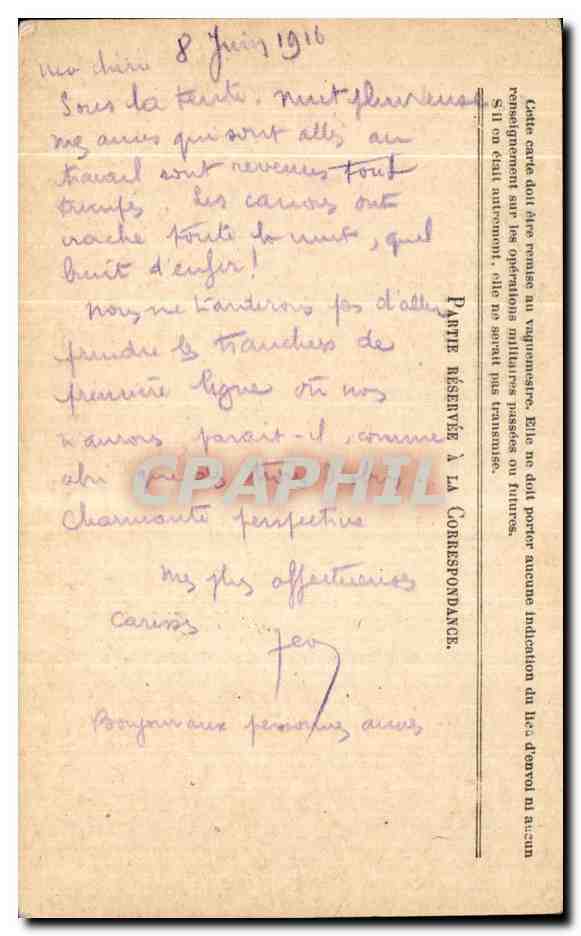 8 Juin 1916
Ma chérie
Sous la tente. nuit pluvieuse
mes amis qui sont allés au
travail sont revenus tout
trempés. Les canons ont
craché toute la nuit, quel
bruit d'enfer!
Nous ne tarderons pas d'aller
prendre les tranchées de
première ligne où nous
n'aurons parait-il, comme
abri
Charmante perspective
Mes plus affectueuses
caresses
Bonjour aux personnes amies
PARTIE RÉSERVÉE À LA CORRESPONDANCE.
Cette carte doit être remise au vaguemestre. Elle ne doit porter aucune indication du lieu d'envoi ni aucun
renseignement sur les opérations militaires passées ou futures.
S'il en était autrement, elle ne serait pas transmise.
CPAPHIL